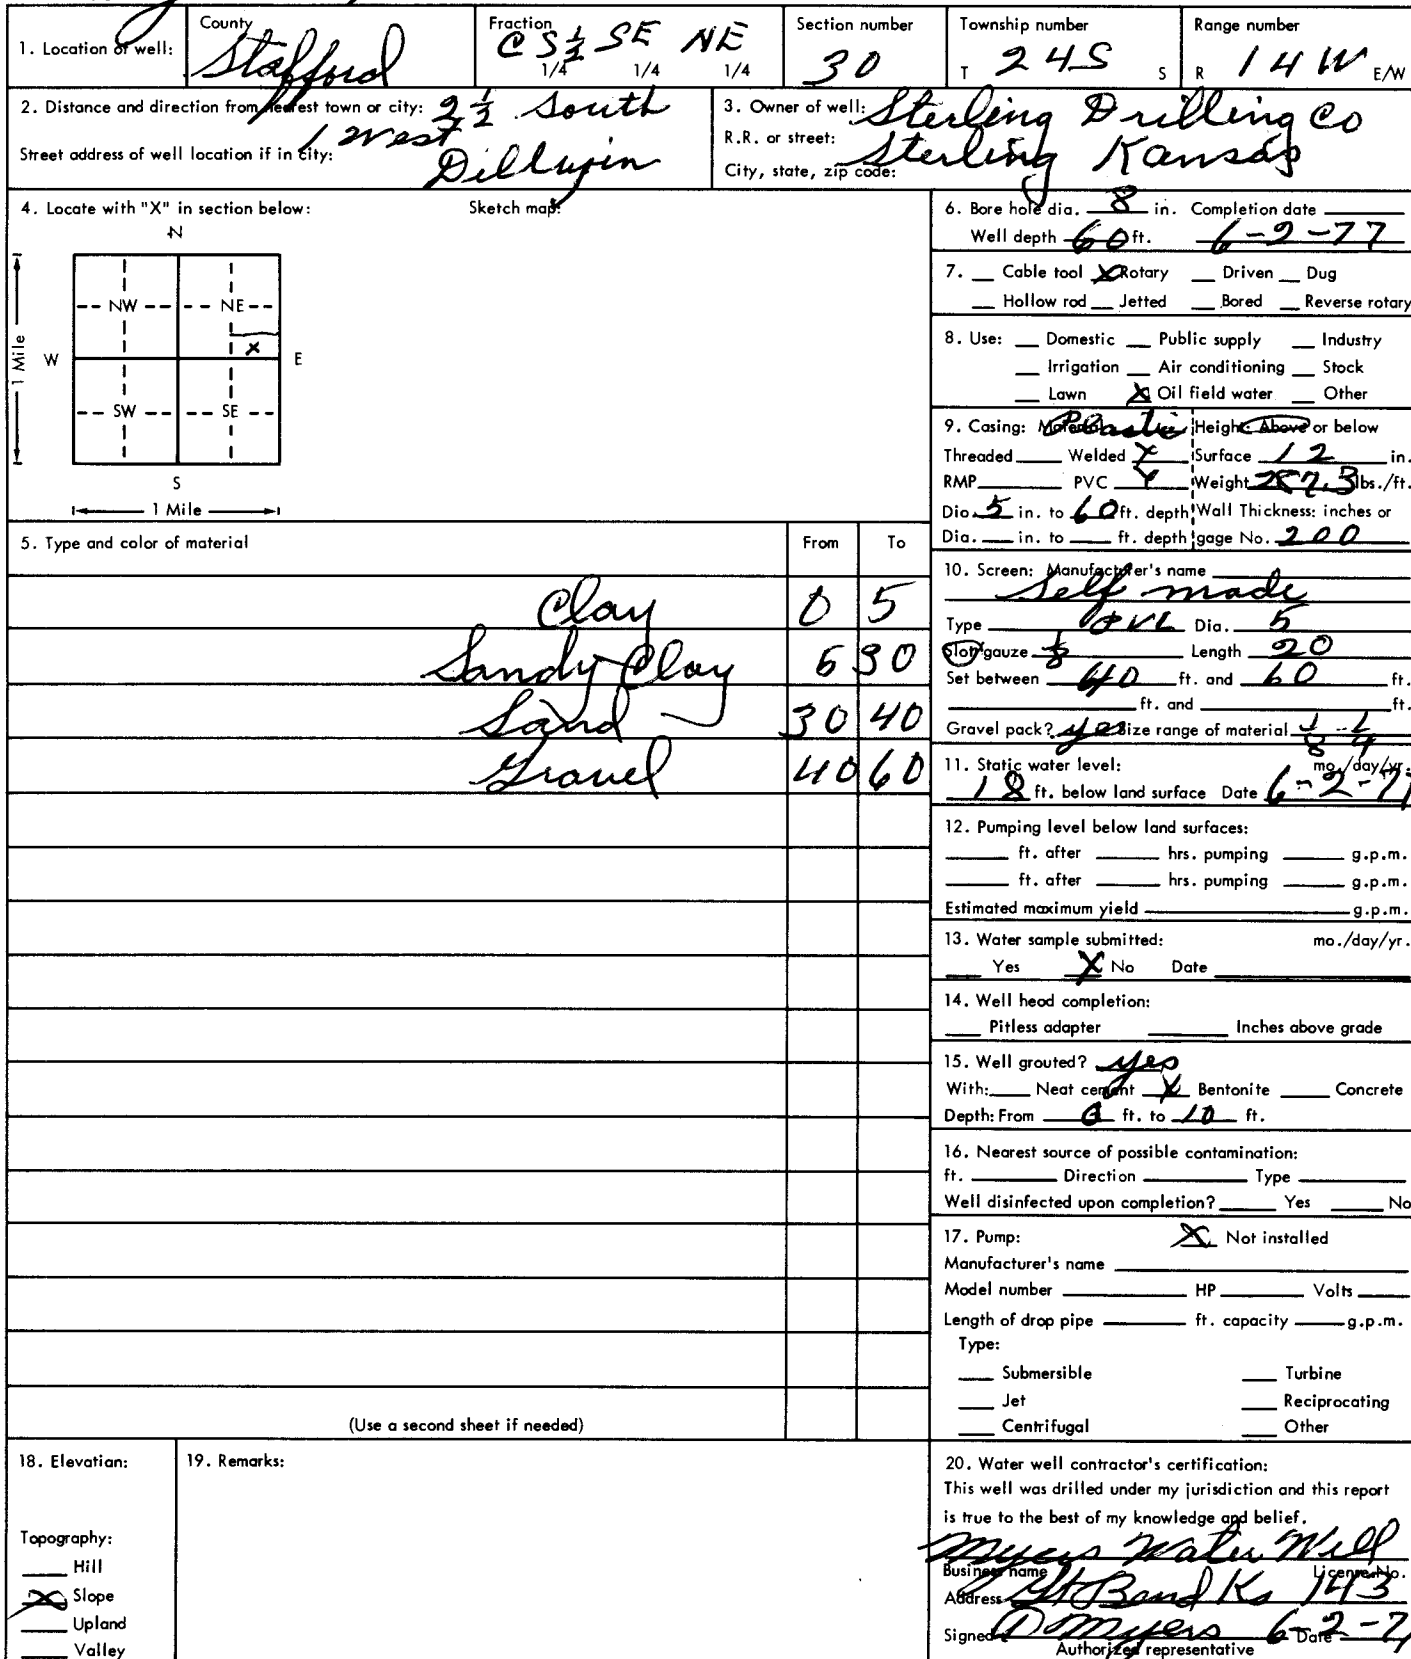 1. Location of well:
County
Stafford
Fraction
C S½ SE NE
1/4 1/4 1/4
Section number
30
Township number
T 24S S
Range number
R 14W E/W
2. Distance and direction from nearest town or city: 2½ South
1 West
Street address of well location if in city:
3. Owner of well: Sterling Drilling Co
R.R. or street:
City, state, zip code: Sterling Kansas
4. Locate with "X" in section below:
Sketch map:
N
NW NE
X
W E
SW SE
S
1 Mile
1 Mile
5. Type and color of material From To
Clay 0 5
Sandy Clay 5 30
Sand 30 40
Gravel 40 60
(Use a second sheet if needed)
6. Bore hole dia. 8 in. Completion date
Well depth 60 ft. 6-2-77
7. __ Cable tool X Rotary __ Driven __ Dug
__ Hollow rod __ Jetted __ Bored __ Reverse rotary
8. Use: __ Domestic __ Public supply __ Industry
__ Irrigation __ Air conditioning __ Stock
__ Lawn X Oil field water __ Other
9. Casing: Material Plastic Height: Above or below
Threaded ____ Welded X Surface 12 in.
RMP ____ PVC X Weight lbs./ft.
Dia. 5 in. to 60 ft. depth Wall Thickness: inches or
Dia. __ in. to __ ft. depth gage No. 200
10. Screen: Manufacturer's name
Self made
Type PVC Dia. 5
Slot/gauze 1/8 Length 20
Set between 40 ft. and 60 ft.
____ ft. and ____ ft.
Gravel pack? yes Size range of material 1/8 - 1/4
11. Static water level: mo./day/yr.
18 ft. below land surface Date 6-2-77
12. Pumping level below land surfaces:
____ ft. after ____ hrs. pumping ____ g.p.m.
____ ft. after ____ hrs. pumping ____ g.p.m.
Estimated maximum yield ____ g.p.m.
13. Water sample submitted: mo./day/yr.
__ Yes X No Date ____
14. Well head completion:
__ Pitless adapter ____ Inches above grade
15. Well grouted? yes
With: __ Neat cement X Bentonite __ Concrete
Depth: From 0 ft. to 10 ft.
16. Nearest source of possible contamination:
ft. ____ Direction ____ Type ____
Well disinfected upon completion? ____ Yes ____ No
17. Pump: X Not installed
Manufacturer's name ____
Model number ____ HP ____ Volts ____
Length of drop pipe ____ ft. capacity ____ g.p.m.
Type:
__ Submersible __ Turbine
__ Jet __ Reciprocating
__ Centrifugal __ Other
18. Elevation:
Topography:
__ Hill
X Slope
__ Upland
__ Valley
19. Remarks:
20. Water well contractor's certification:
This well was drilled under my jurisdiction and this report
is true to the best of my knowledge and belief.
Myers Water Well
Business name License No.
Address Gt Bend Ks 143
Signed D Myers 6-2-77 Date
Authorized representative